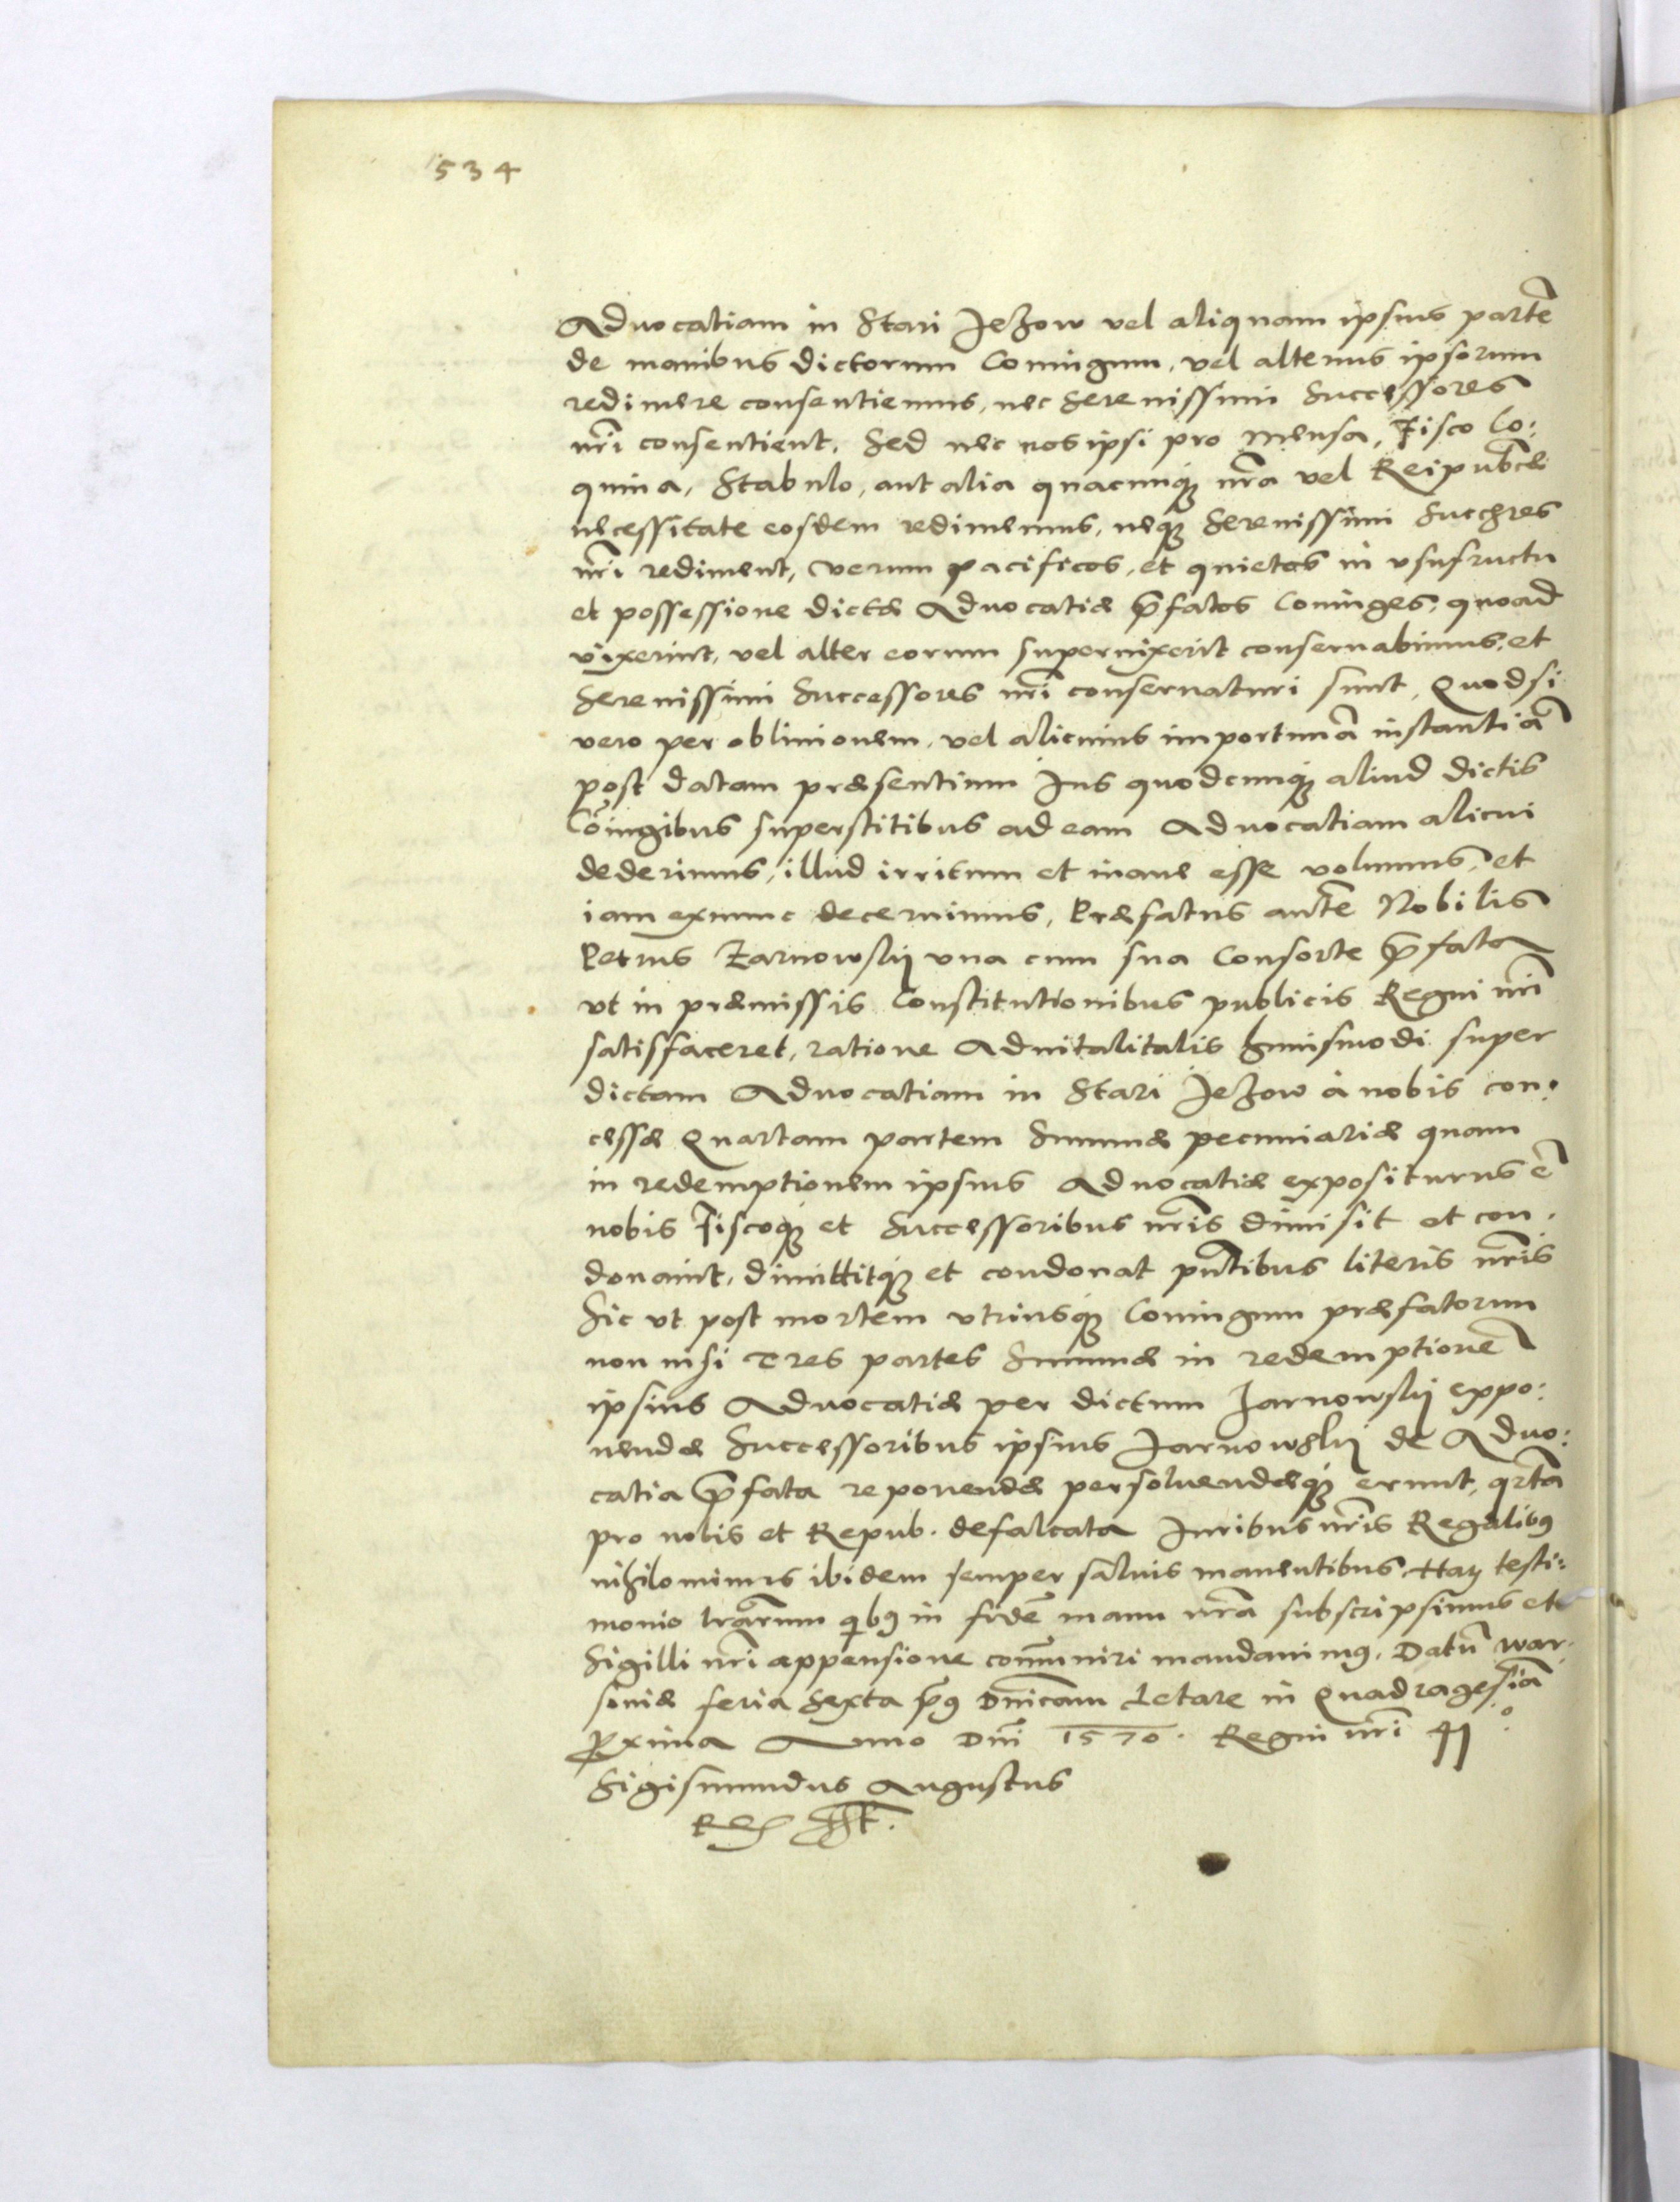 534
Aduocatiam in Stari Jeżow vel aliquam ipsius partē
de manibus dictorum Coniugum, vel alterius ipsorum
redimere consentiemus, nec Serenissimi Successores
nrī consentient. Sed nec nos ipsi pro Mensa, Fisco Co:
quina, Stabulo, aut alia quacunqꝫ nrā vel Reipubcæ
necessitate eosdem redimemus, neqꝫ Serenissimi Succres
nrī rediment, verum pacificos, et quietos in vsufructu
et possessione dictæ Aduocatiæ p̄fatos Coniuges, quoad
vixerint, vel alter eorum superuixerit conseruabimus, et
Serenissimi Successores nrī conseruaturi sunt, Quodsi
vero per obliuionem, vel alicuius importunā instantiā
post datam præsentium Jus quodcunqꝫ aliud dictis
Cōiugibus superstitibus ad eam Aduocatiam alicui
dederimus, illud irritum et inane esse volumus, et
iam exnunc decernimus, Præfatus autē Nobilis
Petrus Żarnowskij vna cum sua Consorte p̄fata
vt in præmissis Constitutionibus publicis Regni nrī
satisfaceret, ratione Aduitalitatis huiusmodi super
dictam Aduocatiam in Stari Jeżow à nobis con:
cessæ Quartam partem Summæ pecuniariæ quam
in redemptionem ipsius Aduocatiæ expositurus ē
nobis Fiscoqꝫ et Successoribus nrīs dimisit et con:
donauit, dimittitqꝫ et condonat pn̄tibus literis nrīs
Sic vt post mortem vtriusqꝫ Coniugum præfatorum
non nisi Tres partes Summæ in redemptionē
ipsius Aduocatiæ per dictum Żarnowskij expo:
nendæ Successoribus ipsius Żarnowskij de Aduo:
catia p̄fata reponendæ persoluendæqꝫ erunt, qrtā
pro nobis et Repub. defalcata Juribus nrīs Regalibꝰ
nihilominus ibidem semper saluis manentibus. Harꝫ testi:
monio lrārum qibꝰ in fidē manu nrā subscripsimus et
Sigilli nrī appensione com̄uniri mandauimꝰ. Datū War:
souiæ feria Sexta p̄ꝰ Dn̄icam Letare in Quadragesiā
p̄xima Anno Dnī 1570. Regni nrī 41°
Sigismundus Augustus
Rex sst.